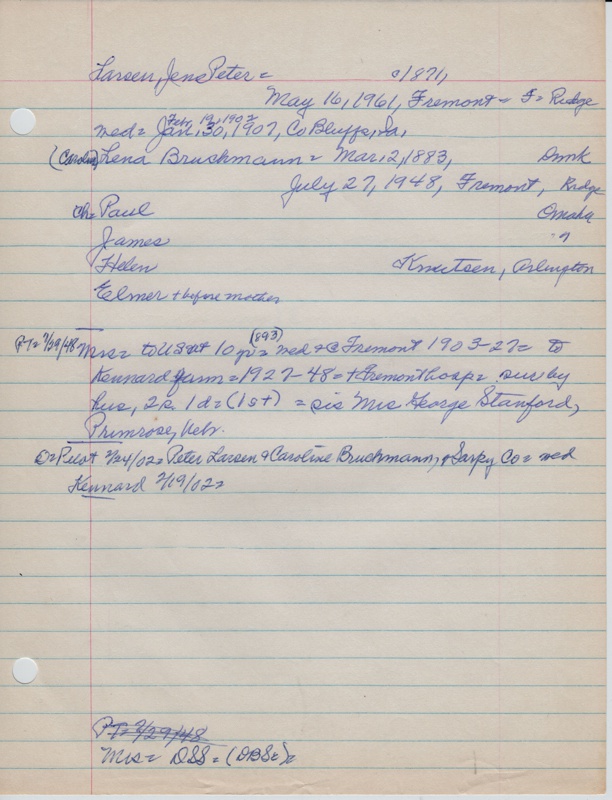 Larsen, Jens Peter = c1871,
May 16, 1961, Fremont = F= Ridge
Feb. 19, 1902
med= Jan. 30, 1907, Co Bluffs, Ia,
(Caroline) Lena Bruchmann = Mar. 2, 1883, Dmk
July 27, 1948, Fremont, Ridge
ch= Paul Omaha
James "
Helen Knutsen, Arlington
Elmer + before mother
PT= 7/29/48 Mrs= to US at 10 yr= (1893) med + C Fremont 1903-27= to
Kennard farm = 1927-48= + Fremont hosp= sur by
hus, 2 s. 1 d= (1st) = sis Mrs George Stanford,
Primrose, Nebr.
Pilot 2/24/02= Peter Larsen & Caroline Bruchmann, Sarpy Co= med
Kennard 2/19/02=
PT= 7/29/48
Mrs= DSS= (DBSE)=